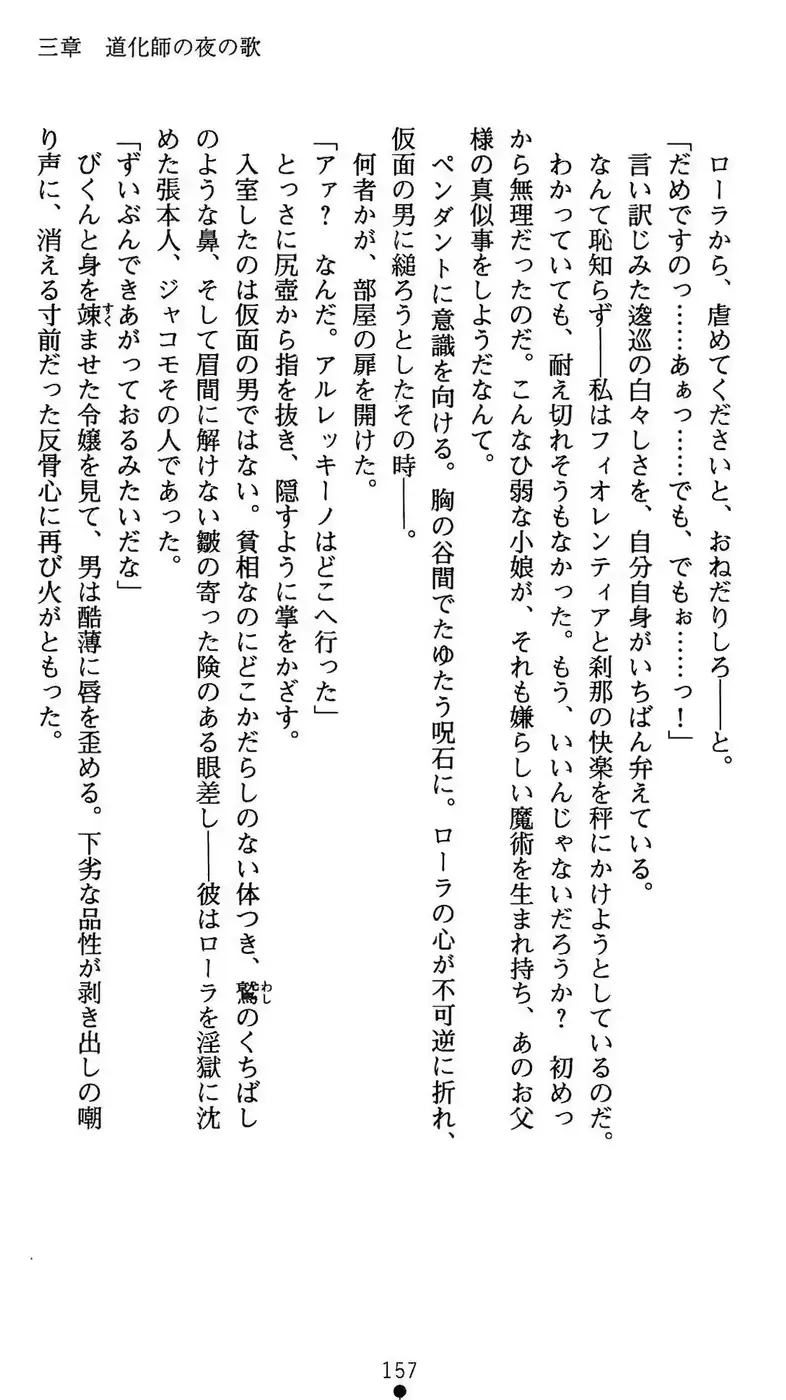 三章　道化師の夜の歌
　ローラから、虐めてくださいと、おねだりしろ――と。
「だめですのっ……あぁっ……でも、でもぉ……っ！」
　言い訳じみた逡巡の白々しさを、自分自身がいちばん弁えている。
　なんて恥知らず――私はフィオレンティアと刹那の快楽を秤にかけようとしているのだ。
　わかっていても、耐え切れそうもなかった。もう、いいんじゃないだろうか？　初めっ
から無理だったのだ。こんなひ弱な小娘が、それも嫌らしい魔術を生まれ持ち、あのお父
様の真似事をしようだなんて。
　ペンダントに意識を向ける。胸の谷間でたゆたう呪石に。ローラの心が不可逆に折れ、
仮面の男に縋ろうとしたその時――。
　何者かが、部屋の扉を開けた。
「アァ？　なんだ。アルレッキーノはどこへ行った」
　とっさに尻壺から指を抜き、隠すように掌をかざす。
　入室したのは仮面の男ではない。貧相なのにどこかだらしのない体つき、鷲わしのくちばし
のような鼻、そして眉間に解けない皺の寄った険のある眼差し――彼はローラを淫獄に沈
めた張本人、ジャコモその人であった。
「ずいぶんできあがっておるみたいだな」
　びくんと身を竦すくませた令嬢を見て、男は酷薄に唇を歪める。下劣な品性が剥き出しの嘲
り声に、消える寸前だった反骨心に再び火がともった。
157